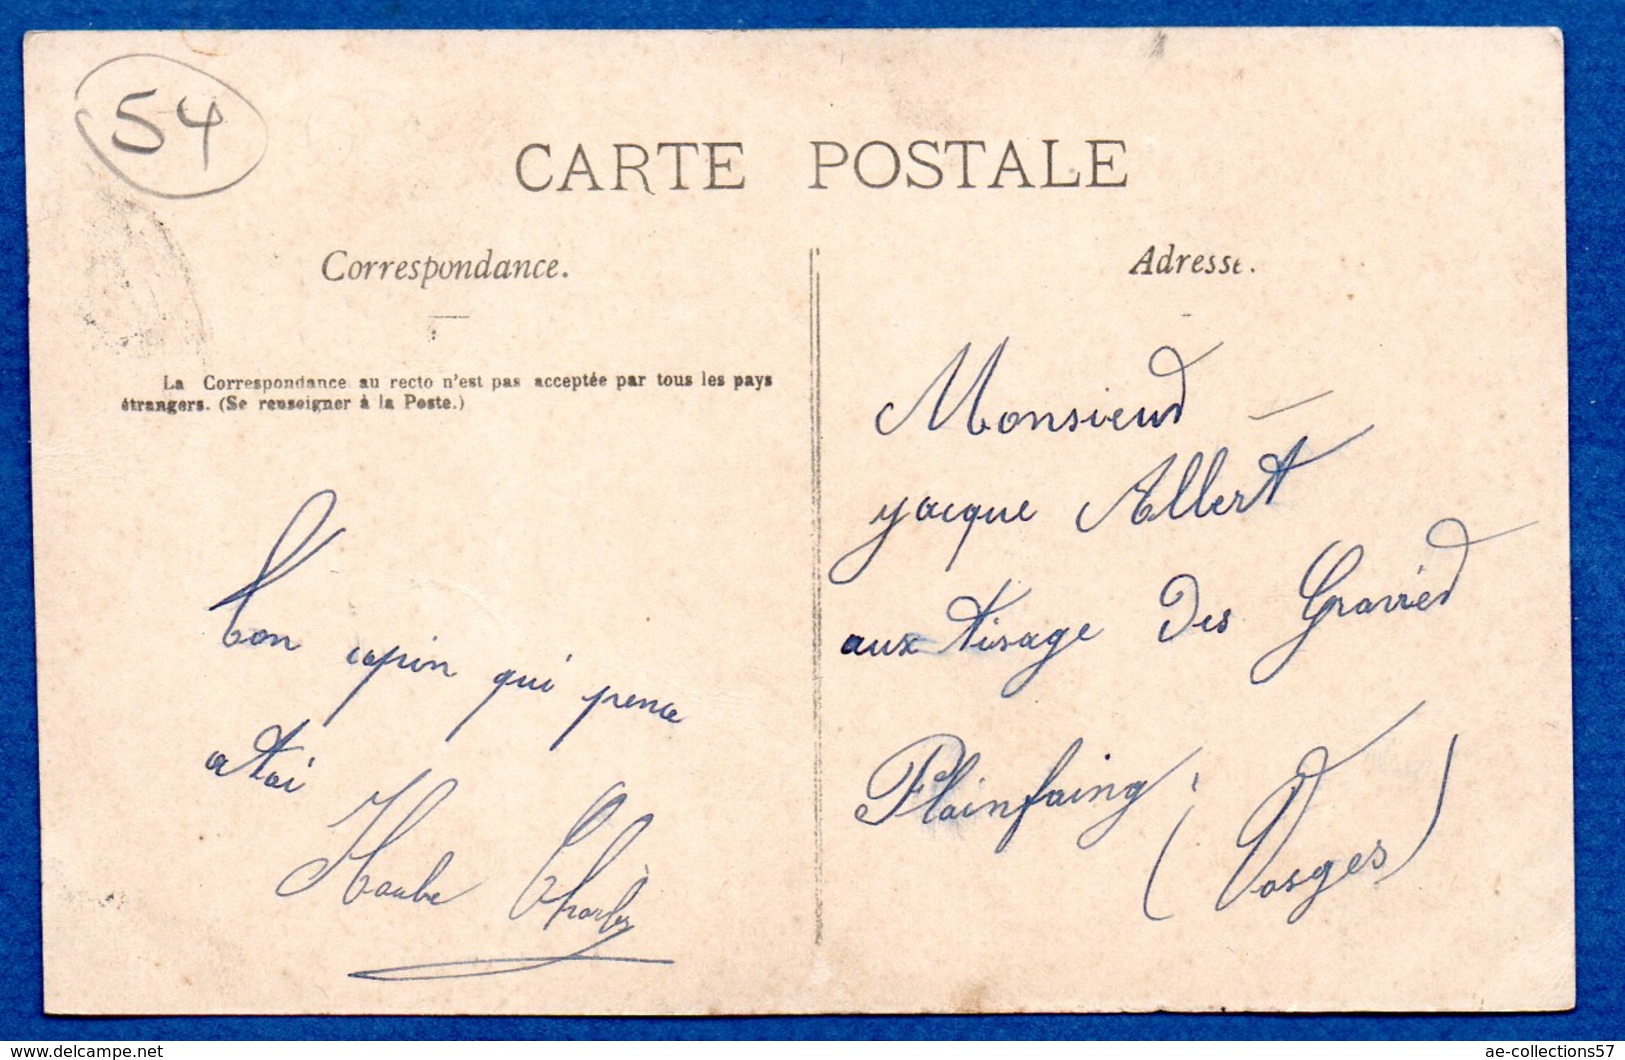 54
CARTE POSTALE
Correspondance.
La Correspondance au recto n'est pas acceptée par tous les pays
étrangers. (Se renseigner à la Poste.)
ton copin qui pence
a toi
Haube Charles
Adresse.
Monsieur
yacque Albert
aux tisage des Gravier
Plainfaing
(Vosges)
www.delcampe.net
ae-collections57